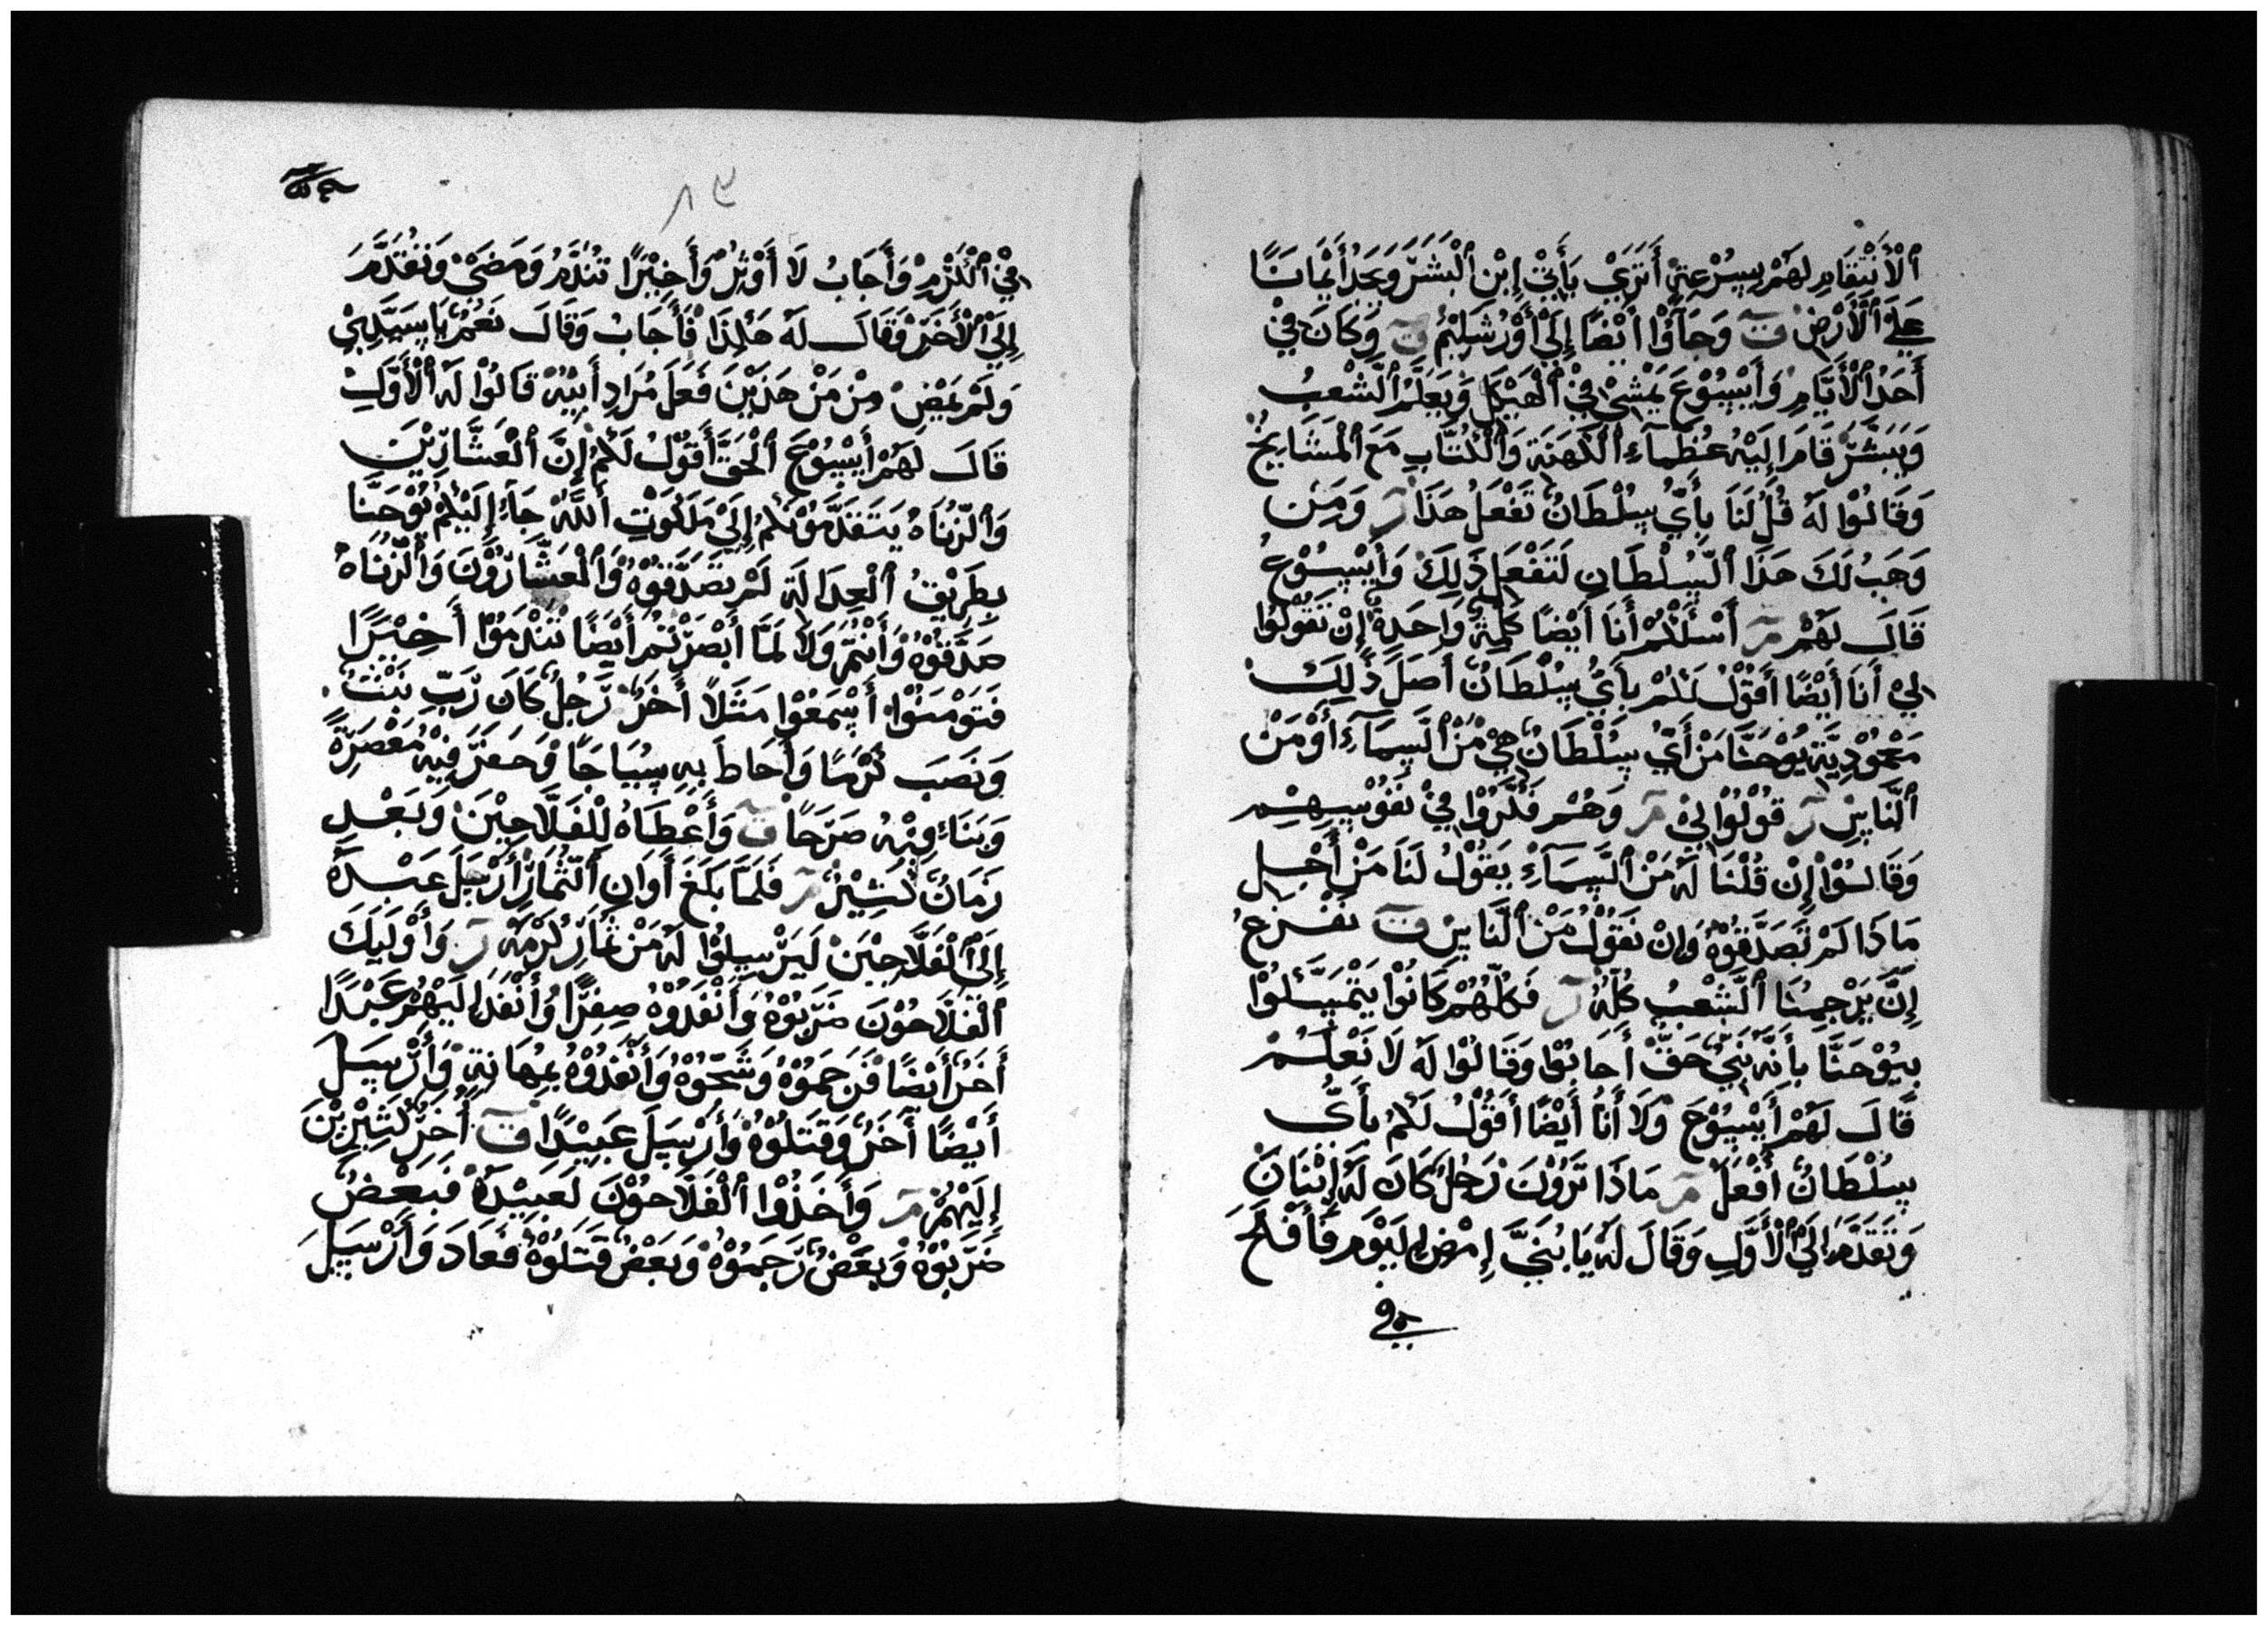 ٱلْأَنْتِقَامِ لَهُمْ بِسُرْعَةٍ أَتَرَىْ يَأْتِيْ إِبْنِ ٱلْبَشَرْ وَيَجَدُ أَيْمَانًا
عَلَىْ ٱلْأَرْضِ وَجَآؤُا أَيْضًا إِلَىْ أَوْرُشَلِيْمُ وَكَانَ فِيْ
أَحَدُ ٱلْأَيَّامِ وَأَيْسُوْعَ يَمْشِيْ فِيْ ٱلْهَيْكَلِ وَيَعَلِّمُ ٱلشَّعْبُ
وَيَبَشَّرْ قَامَ إِلَيْهِ عُظَمَآءِ ٱلْكَهَنَةِ وَٱلْكُتَّابِ مَعَ ٱلْمَشَايِخُ
وَقَالُوْا لَهُ قُلْ لَنَا بِأَيُّ سُلْطَانٌ تَفْعَلُ هَذَا وَمَنْ
وَهَبُ لَكَ هَذَا ٱلسُلْطَانِ لَتَفْعَلَ ذَلِكَ وَأَيْسُوْعُ
قَالَ لَهُمْ أَسْئَلُكُمْ أَنَا أَيْضًا كَلِمَةً وَاحِدَةً إِنْ تَقُوْلُوْا
لِيْ أَنَا أَيْضًا أَقُوْلُ لَكُمْ بِأَيُّ سُلْطَانٌ أَصِلَ ذَلِكَ
مَعْمُوْدِيَّةِ يُوْحَنَّا مَنْ أَيُّ سُلْطَانٌ هِيْ مِنْ ٱلسَمَآءِ أَوْ مَنْ
ٱلنَّاسِ قُوْلُوْا لِيْ وَهُمْ فَكَّرُوْا فِيْ نَفُوْسِهِمْ
وَقَالُوْا إِنْ قُلْنَا لَهُ مَنْ ٱلسَمَآءِ يَقُوْلُ لَنَا مَنْ أَجْلِ
مَاذَا لَمْ تَصَدَّقُوْهُ وَإِنْ نَقُوْلُ مَنْ ٱلنَّاسِ نَفْزَعُ
إِنَّ يَرْجِمُنَا ٱلشَعْبُ كُلُّهُ فَكُلُّهُمْ كَانُوْا يَتْمَسَّكُوْا
بِيُوْحَنَّا بِأَنَّهُ نَبِيٌّ حَقٌّ أَجَابُوْا وَقَالُوْا لَهُ لَا نَعْلَمُ
قَالَ لَهُمْ أَيْسُوْعَ وَلَا أَنَا أَيْضًا أَقُوْلُ لَكُمْ بِأَيُّ
سُلْطَانٌ أَفْعَلْ مَاذَا تَرَوْنَ رَجُلٌ كَانَ لَهُ إِبْنَانَ
وَتَقَدَّمَ إِلَىْ ٱلْأَوَّلِ وَقَالَ لَهُ يَا بُنَيَّ إِمْضِ لِيَوْمَ فَأَفْلَحَ
فِي
فِيْ ٱلْكَرْمِ وَأَجَابُ لَا أَوْثِرْ وَأَخِيْرًا تَنَدَّمُ وَمَضَىْ وَتَقَدَّمَ
إِلَىْ ٱلْأَخَرْ وَقَالَ لَهُ هَكَذَا فَأَجَابُ وَقَالَ نَعَمُ يَا سَيِّدِيْ
وَلَمْ يَمْضِ مِنْ مَنْ هَذَيْنَ فَعَلَ مُرَادِ أَبِيْهِ قَالُوْا لَهُ ٱلْأَوَّلِ
قَالَ لَهُمْ أَيْسُوْعَ ٱلْحَقَّ أَقُوْلُ لَكُمْ إِنَّ ٱلْعَشَّارِيْنَ
وَٱلزُنَاهُ يَتَقَدَّمُوْكُمْ إِلَىْ مَلَكُوْتِ ٱللَّهْ جَآءَ إِلَيْكُمْ يُوْحَنَّا
بِطَرِيْقُ ٱلْعِدَالَةِ لَمْ تَصَدَّقُوْهُ وَٱلْعَشَّارُوْنَ وَٱلزُنَاهُ
صَدَّقُوْهُ وَأَنْتُمْ وَلَا لَمَّا أَبْصَرْتُمْ أَيْضًا تَنْدَمُوْا أَخِيْرًا
فَتَوْمَنُوْا أَسْمَعُوْا مَثَلًا أَخَرُ رَجُلٌ كَانَ رَبّ بَيْتٌ
وَنَصَبَ كَرْمًا وَأَحَاطَ بِهِ سِيَاجًا وَحَفَرَ فِيْهِ مَعْصَرَةً
وَبَنَاءَ فِيْهِ صَرَحًا وَأَعْطَاهُ لِلْفَلَّاحِيْنَ وَبَعْدِ
زَمَانٌ كَثِيْرٌ فَلَمَّا بَلَغَ أَوَانِ ٱلثِّمَارْ أَرْسَلَ عَبْدَهُ
إِلَىْ ٱلْفَلَّاحِيْنَ لَيَرْسِلُوْا لَهُ مَنْ ثِمَارْ كَرْمَهُ وَأَوْلَيِكَ
ٱلْفَلَّاحُوْنَ ضَرَبُوْهُ وَأَنْفَدُوْهُ صِفِرًا وَأَنْفَدَ إِلَيْهُمْ عَبْدًا
أَخَرُ أَيْضًا فَرَجَمُوْهُ وَشَجُّوْهُ وَأَنْفَدُوْهُ بِمُهَانَةٍ وَأَرْسَلَ
أَيْضًا أَخَرُ وَقَتَلُوْهُ وَأَرْسَلَ عَبِيْدًا أُخَرْ كَثِيْرِيْنَ
إِلَيْهُمْ وَأَخَذُوْا ٱلْفَلَّاحُوْنَ لَعَبِيْدَهُ فَبَعْضٌ
ضَرَبُوْهُ وَبَعْضٌ رَجَمُوْهُ وَبَعْضٌ قَتَلُوْهُ فَعَادَ وَأَرْسَلَ